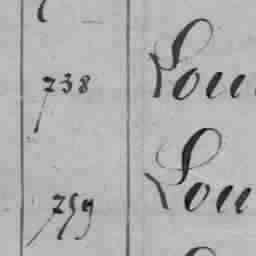 738 Lou
759 Lou